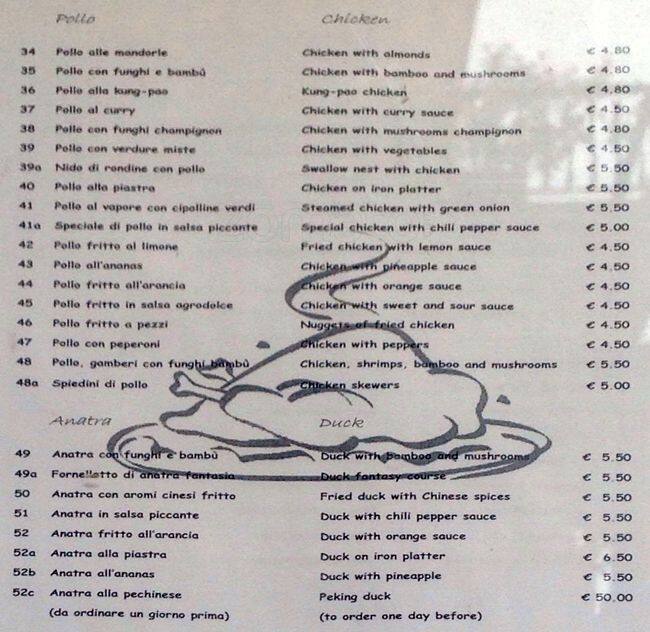 Pollo Chicken
34 Pollo alle mandorle Chicken with almonds € 4.80
35 Pollo con funghi e bambù Chicken with bamboo and mushrooms € 4.80
36 Pollo alla kung-pao Kung-pao chicken € 4.80
37 Pollo al curry Chicken with curry sauce € 4.50
38 Pollo con funghi champignon Chicken with mushrooms champignon € 4.80
39 Pollo con verdure miste Chicken with vegetables € 4.50
39a Nido di rondine con pollo Swallow nest with chicken € 5.50
40 Pollo alla piastra Chicken on iron platter € 5.50
41 Pollo al vapore con cipolline verdi Steamed chicken with green onion € 5.50
41a Speciale di pollo in salsa piccante Special chicken with chili pepper sauce € 5.00
42 Pollo fritto al limone Fried chicken with lemon sauce € 4.50
43 Pollo all'ananas Chicken with pineapple sauce € 4.50
44 Pollo fritto all'arancia Chicken with orange sauce € 4.50
45 Pollo fritto in salsa agrodolce Chicken with sweet and sour sauce € 4.50
46 Pollo fritto a pezzi Nuggets of fried chicken € 4.50
47 Pollo con peperoni Chicken with peppers € 4.50
48 Pollo, gamberi con funghi bambù Chicken, shrimps, bamboo and mushrooms € 5.50
48a Spiedini di pollo Chicken skewers € 5.00
Anatra Duck
49 Anatra con funghi e bambù Duck with bamboo and mushrooms € 5.50
49a Fornelletto di anatra fantasia Duck fantasy course € 5.50
50 Anatra con aromi cinesi fritto Fried duck with Chinese spices € 5.50
51 Anatra in salsa piccante Duck with chili pepper sauce € 5.50
52 Anatra fritto all'arancia Duck with orange sauce € 5.50
52a Anatra alla piastra Duck on iron platter € 6.50
52b Anatra all'ananas Duck with pineapple € 5.50
52c Anatra alla pechinese Peking duck € 50.00
(da ordinare un giorno prima) (to order one day before)